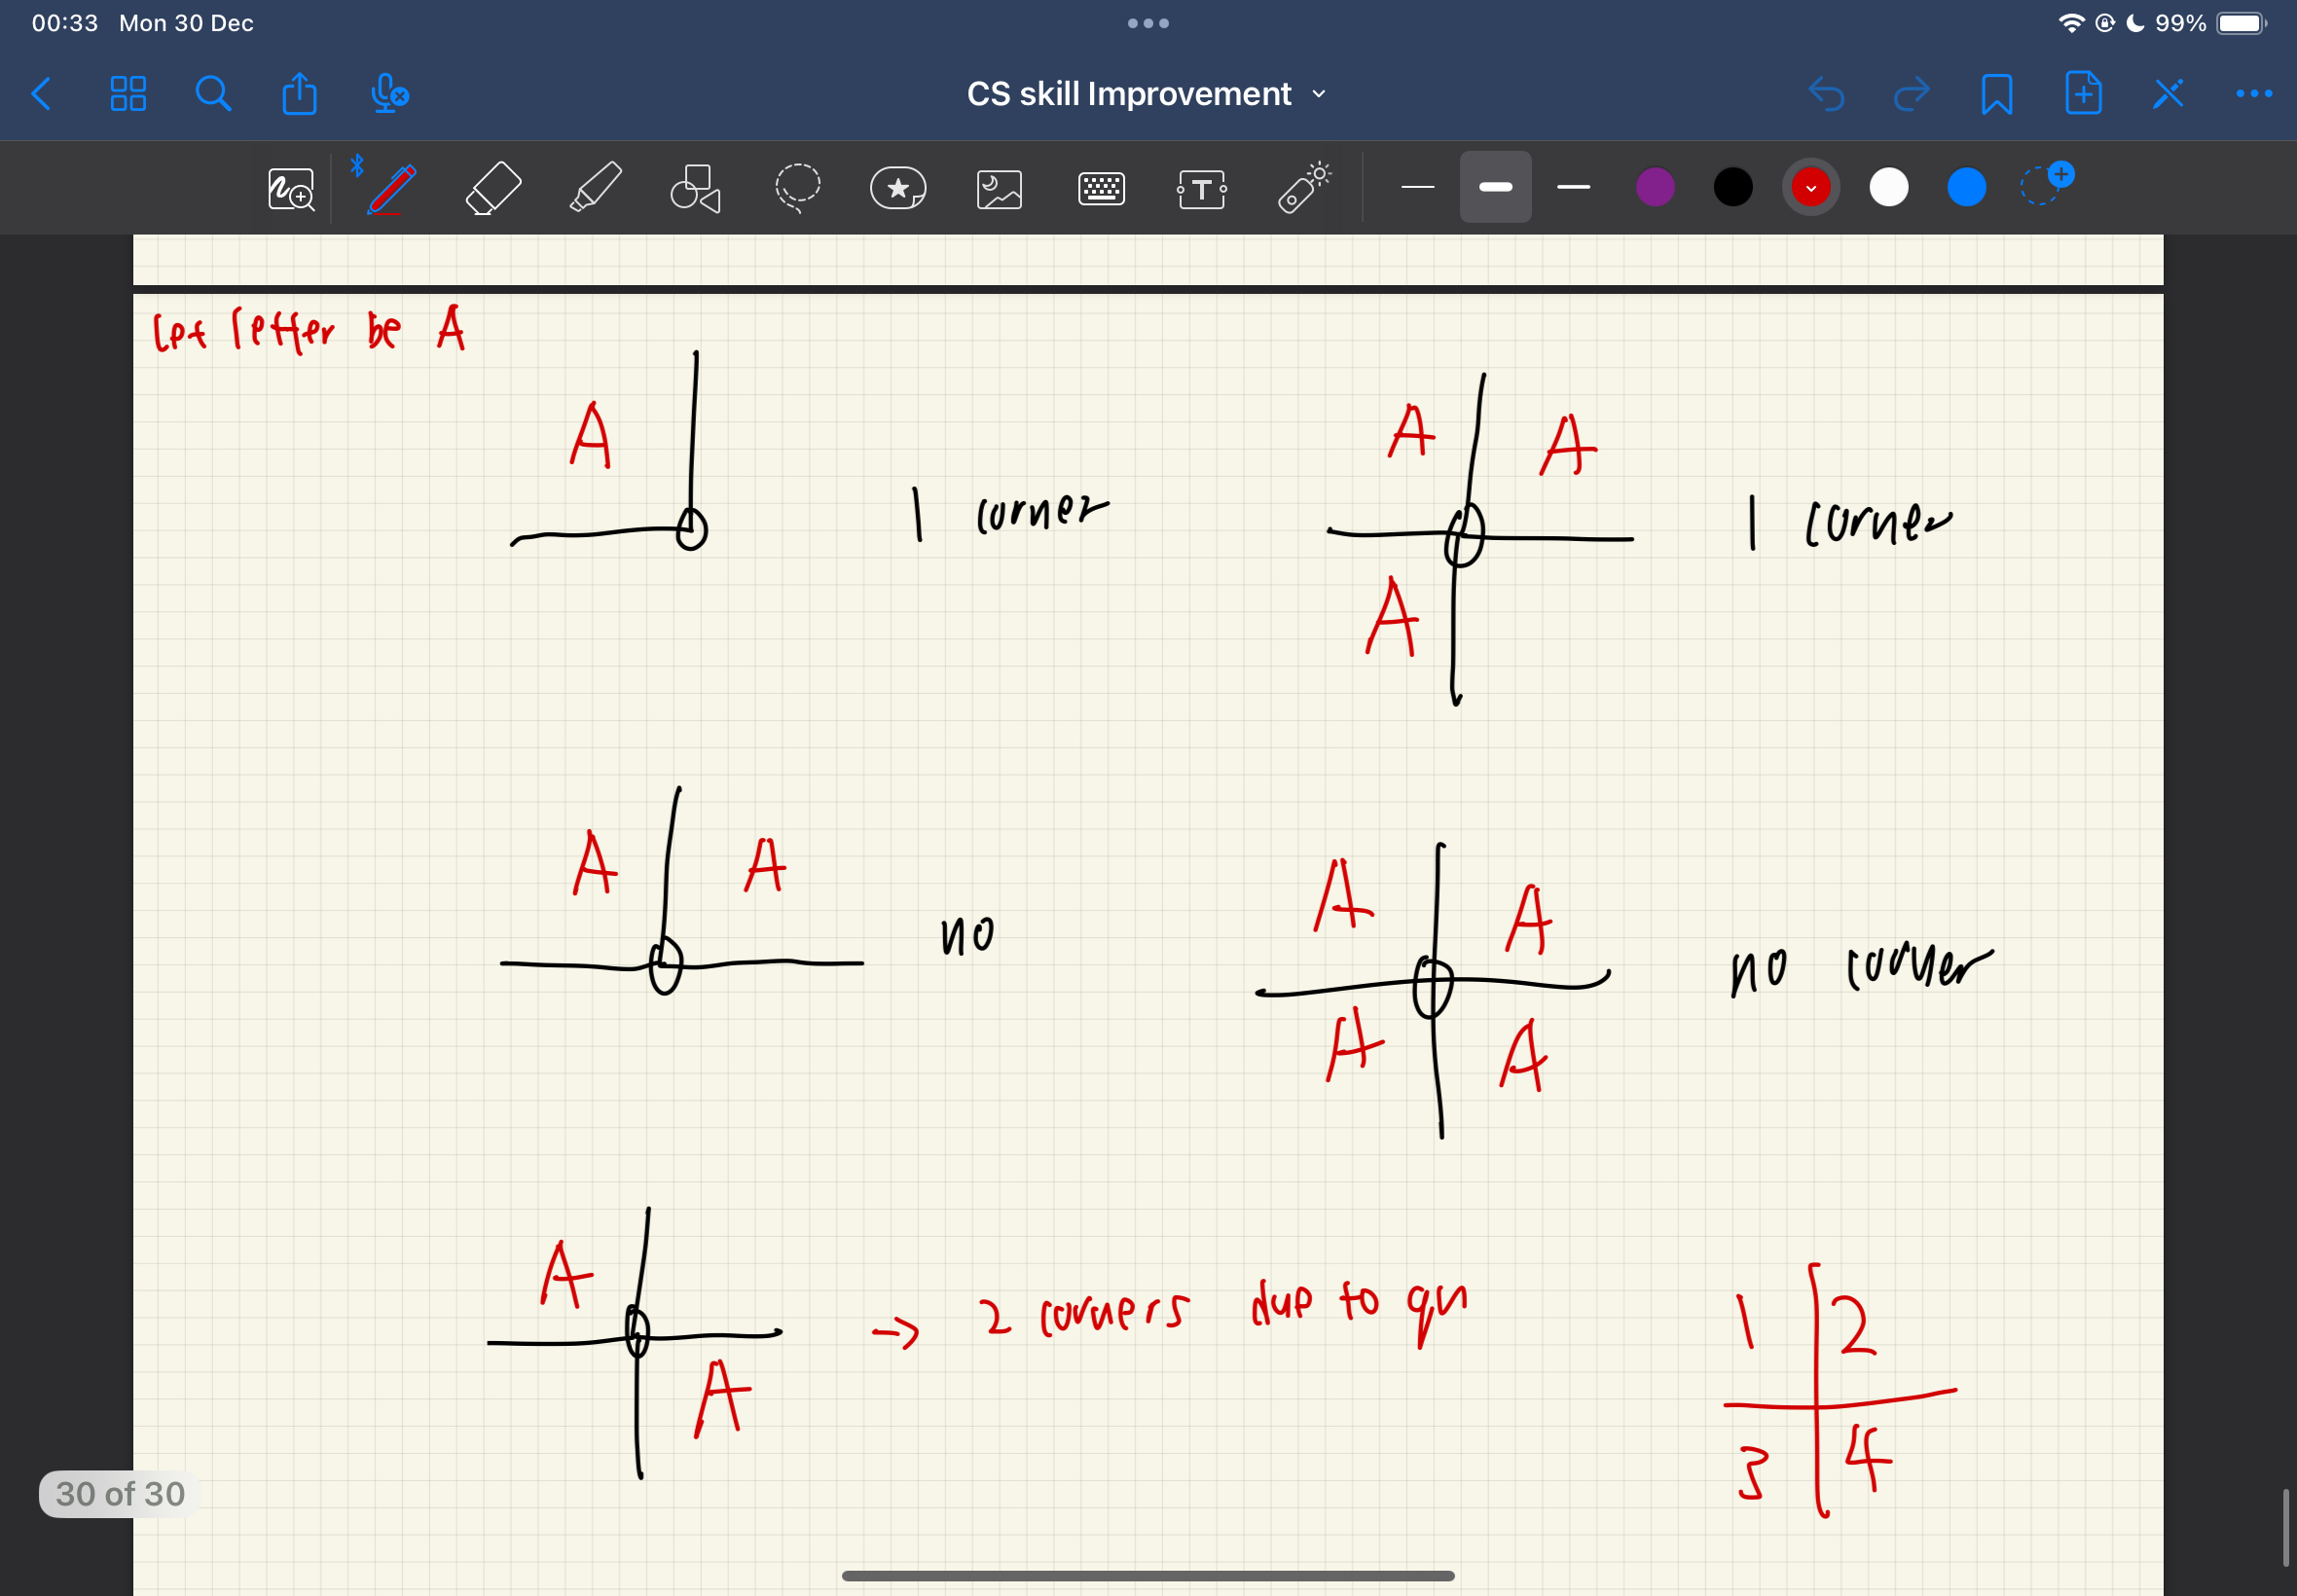 00:33 Mon 30 Dec
99%
CS skill Improvement
T
Let letter be A
A
A A
1 corner
1 corner
A
A A
A A
no
no corner
A A
A
→ 2 corners due to qn
1 2
A
3 4
30 of 30